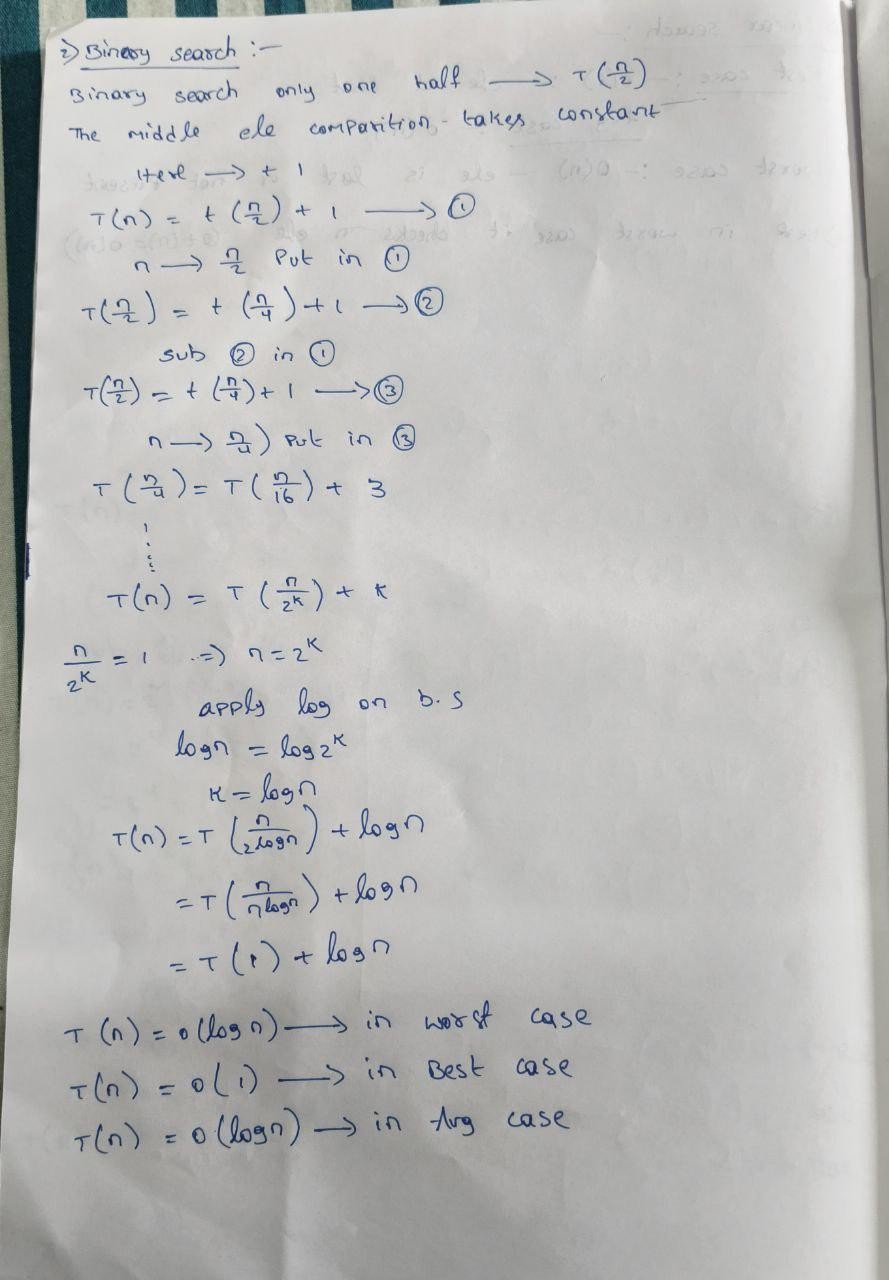 2) Binary search :-
Binary search only one half → T(n/2)
The middle ele comparition takes constant
Here → + 1
T(n) = t(n/2) + 1 → ①
n → n/2 Put in ①
T(n/2) = t(n/4) + 1 → ②
sub ② in ①
T(n/2) = t(n/4) + 1 → ③
n → n/4) Put in ③
T(n/4) = T(n/16) + 3
⋮
T(n) = T(n/2^K) + K
n/2^K = 1 ⇒ n = 2^K
apply log on b.s
logn = log2^K
K = logn
T(n) = T(n/2logn) + logn
= T(n/nlogn) + logn
= T(1) + logn
T(n) = O(logn) → in worst case
T(n) = O(1) → in Best case
T(n) = O(logn) → in Avg case